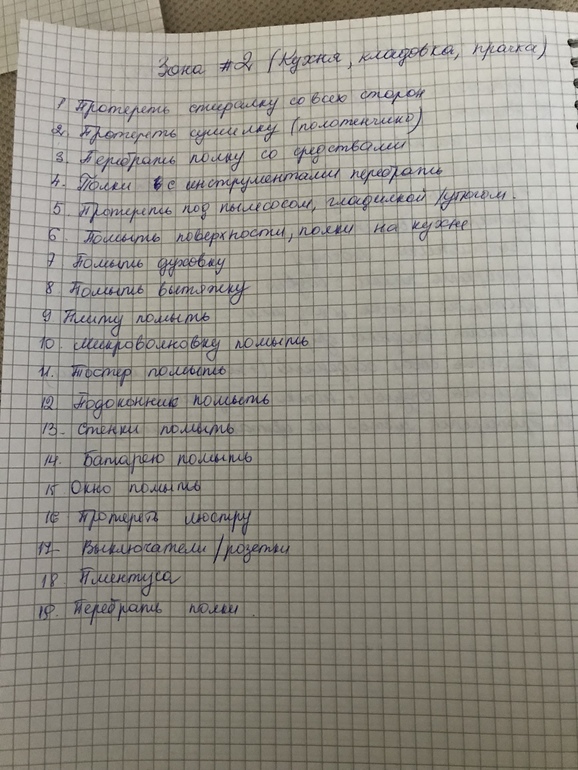 Зона #2 (Кухня, кладовка, прачка)
1 Протереть стиралку со всех сторон
2. Протереть сушилку (полотенчико)
3. Перебрать полку со средствами
4. Полки с инструментами перебрать
5. Протереть под пылесосом, гладилкой/утюгом.
6. Помыть поверхности, полки на кухне
7 Помыть духовку
8 Помыть вытяжку
9 Плиту помыть
10. Микроволновку помыть
11. Тостер помыть
12 Подоконник помыть
13. Стенки помыть
14. Батарею помыть
15 Окно помыть
16 Протереть люстру
17 Выключатели/розетки
18 Плинтуса
19. Перебрать полки.